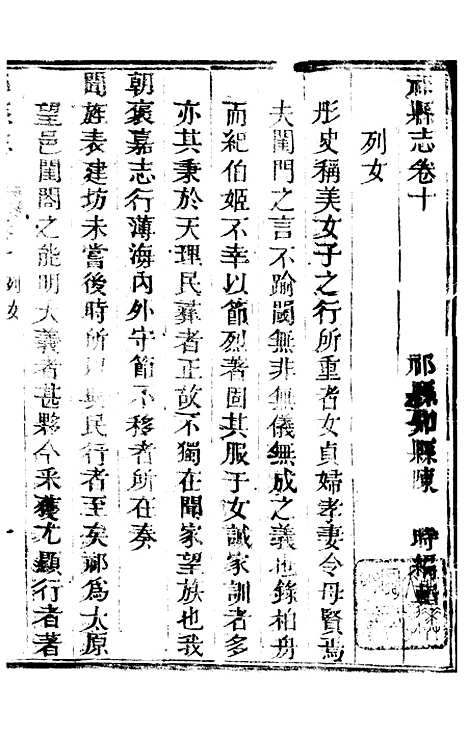 祁縣志卷十
祁縣知縣陳 時編輯
列女
彤史稱美女子之行所重者女貞婦孝妻令母賢焉
夫閨門之言不踰閾無非無儀無成之義也錄柏舟
而紀伯姬不幸以節烈著固其服于女誡家訓者多
亦其秉於天理民彝者正故不獨在聞家望族也我
朝褒嘉志行薄海內外守節不移者所在奏
聞旌表建坊未嘗後時所以興民行者至矣祁為太原
望邑閨閤之能明大義者甚夥今采獲尤顯行者著
列女